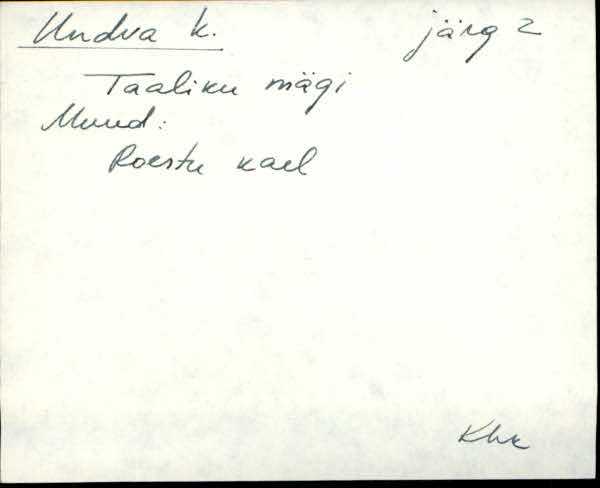 Undva k. järg 2
Taaliku mägi
Muud:
Roestu kael
Khk